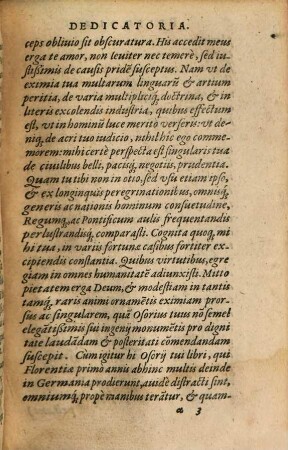 DEDICATORIA.
ceps obliuio sit obscuratura. His accedit meus
erga te amor, non leuiter nec temerè, sed iu-
stissimis de causis pridē susceptus. Nam vt de
eximia tua multarum linguarū & artium
peritia, de varia multipliciq́, doctrina, & in
literis excolendis industria, quibus effectum
est, vt in hominū luce meritò verseris: vt de-
niq, de acri tuo iudicio, nihil hîc ego comme-
morem: mihi certè perspecta est singularis tua
de ciuilibus belli, pacisq, negotiis, prudentia.
Quam tu tibi non in otio, sed vsu etiam ipso,
& ex longinquis peregrinationibus, omnisq́,
generis ac nationis hominum consuetudine,
Regumq, ac Pontificum aulis frequentandis
perlustrandisq́, comparasti. Cognita quoq, mi
hi tua, in variis fortunæ casibus fortiter ex-
cipiendis constantia. Quibus virtutibus, egre
giam in omnes humanitatē adiunxisti. Mitto
pietatem erga Deum, & modestiam in tantis
tamq́, raris animi ornamētis eximiam pror-
sus ac singularem, quā Osorius tuus nō semel
elegātissimis sui ingenij monumētis pro digni
tate laudādam & posteritati comendandam
suscepit. Cùm igitur hi Osorij tui libri, qui
Florentiæ primò annū abhinc multis deinde
in Germania prodierunt, auidè distracti sint,
omniumq́, propè manibus terātur, & quam-
a 3